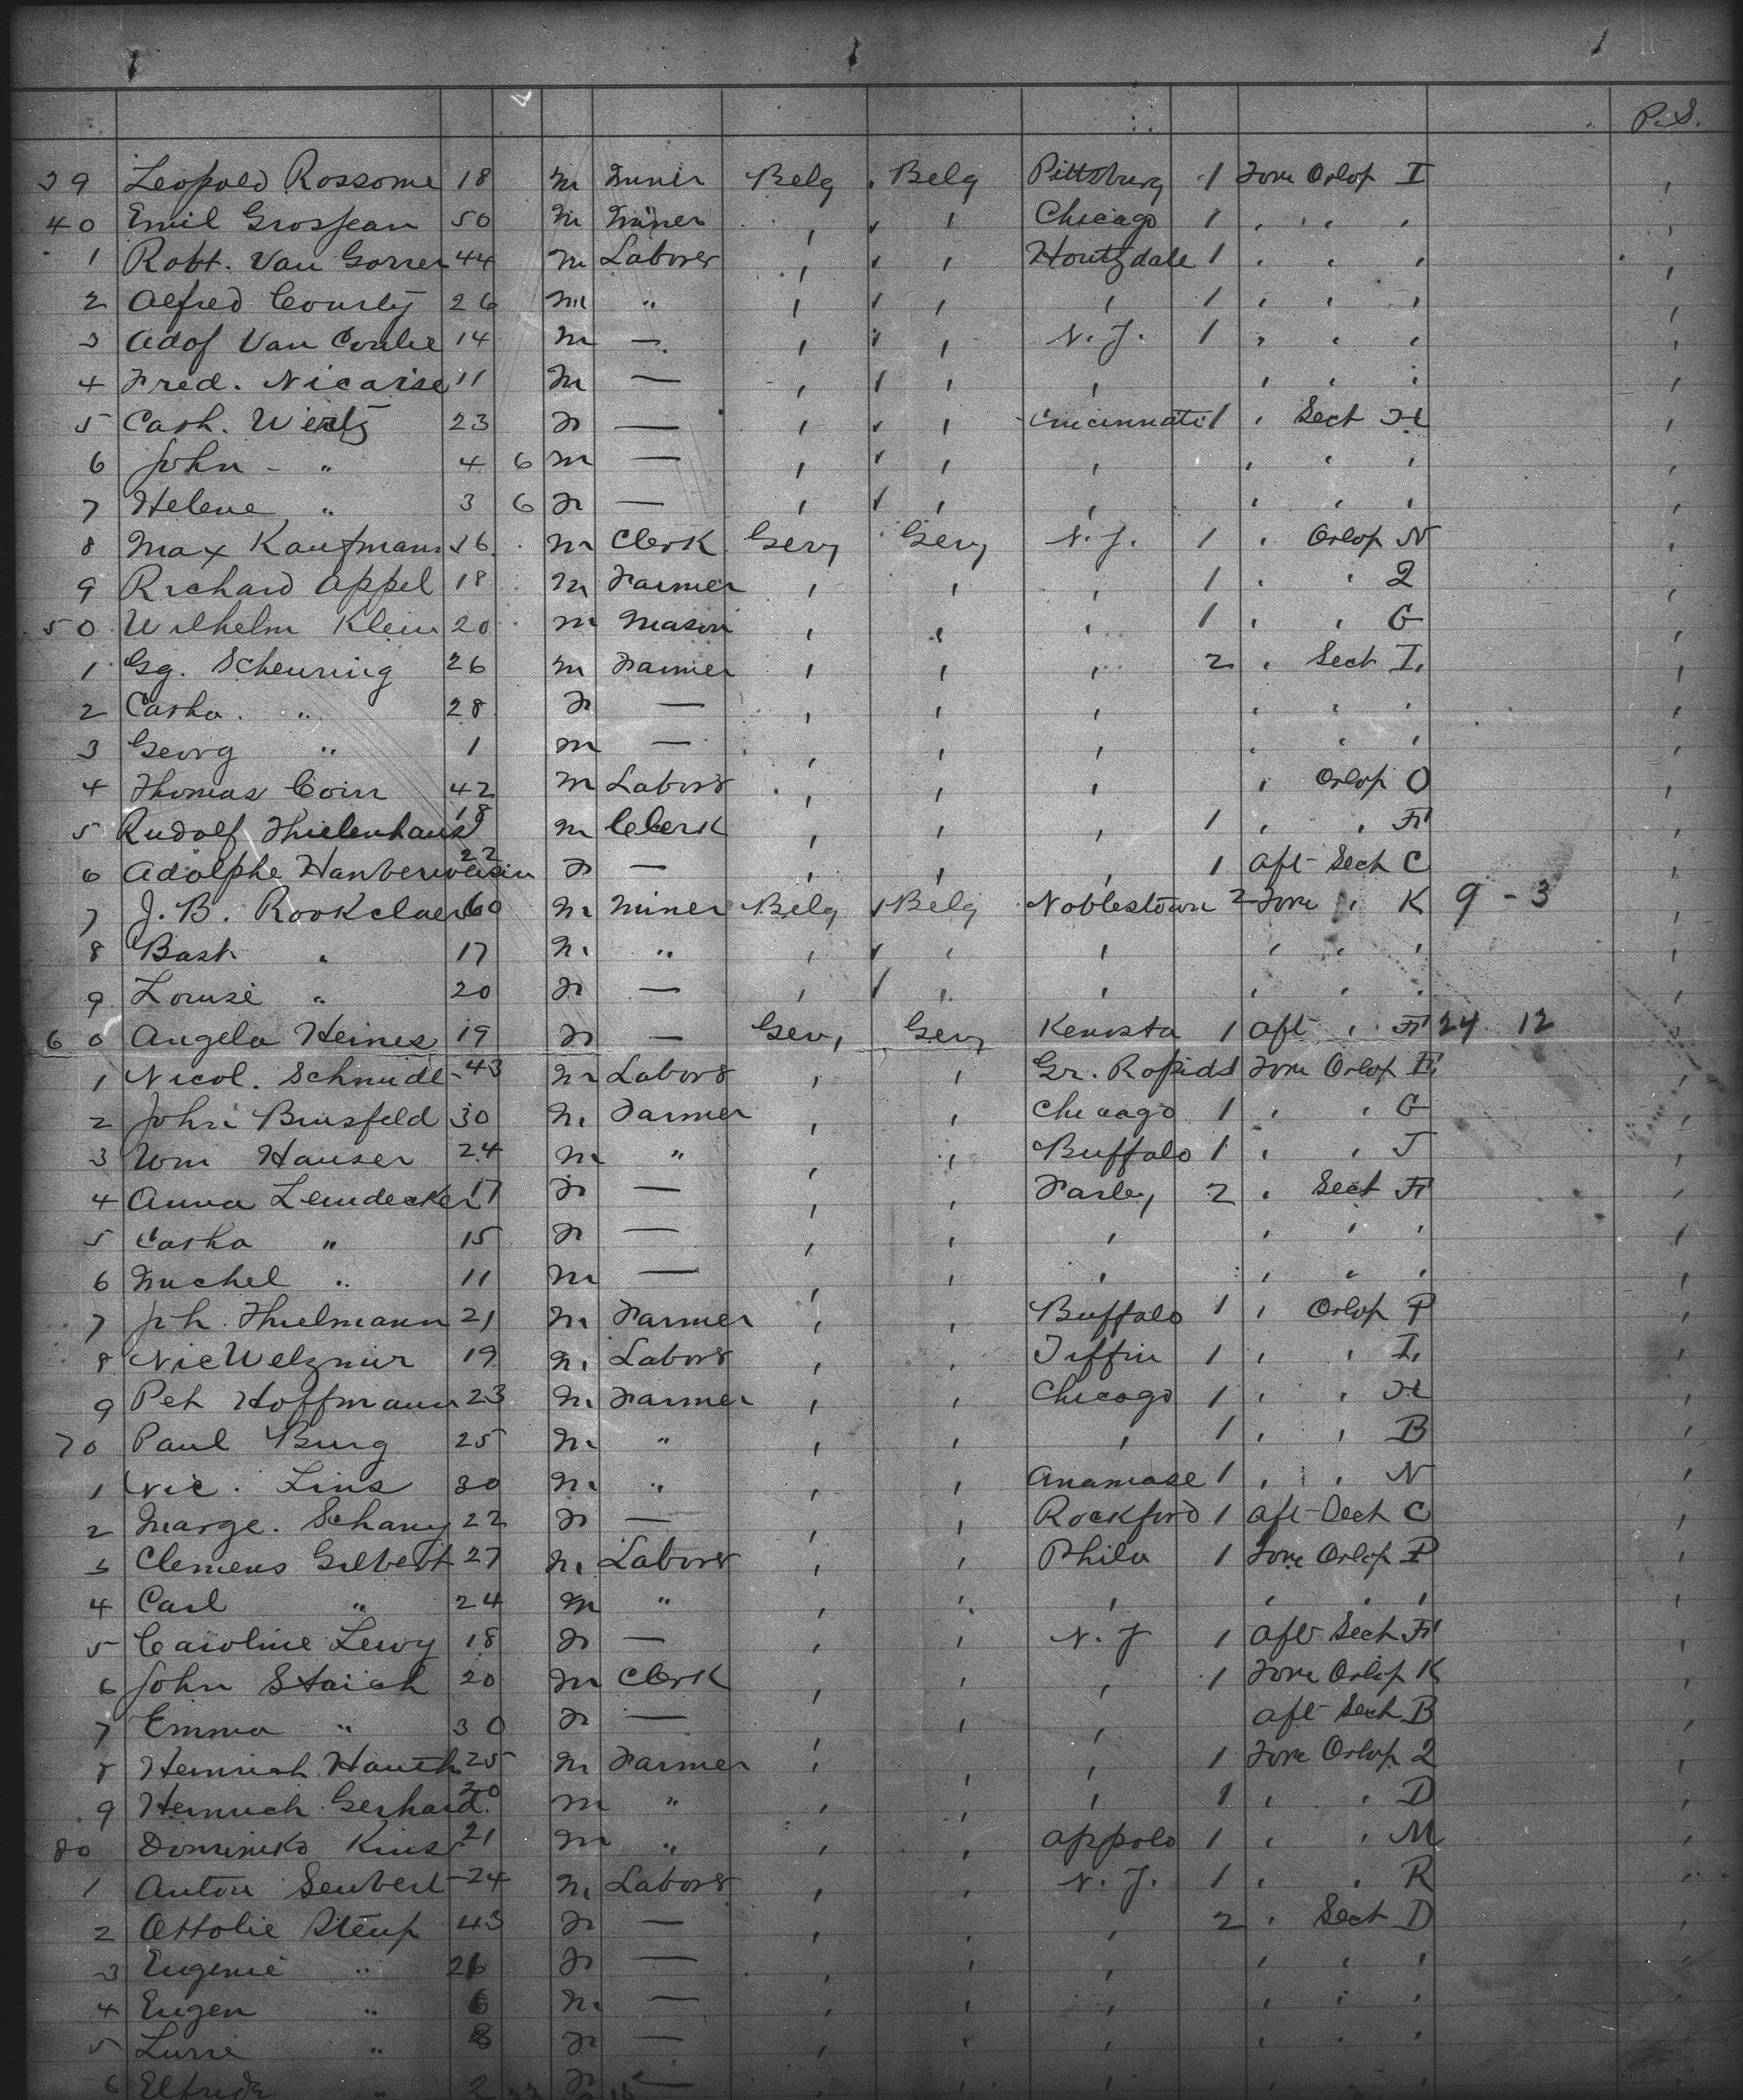 P.S.
39 Leopold Rossome 18 m Miner Belg Belg Pittsburg 1 Fore Orlop I
40 Emil Grosjean 50 m Miner , , Chicago 1 , , ,
1 Robt. Van Gorrer 44 m Laborer , , Houtzdale 1 , , ,
2 Alfred Courty 26 m " , , , 1 , , ,
3 Adof Van 14 m — , , N.J. 1 , , ,
4 Fred. Nicaise 11 m — , , , , , ,
5 Cath. Wertz 23 f — , , Cincinnati 1 , Sect H
6 John " 4 6 m — , , , , , ,
7 Helene " 3 6 f — , , , , , ,
8 Max Kaufmann 16 m Clerk Gery Gery N.J. 1 , Orlop N
9 Richard Appel 18 m Farmer , , , 1 , , Q
50 Wilhelm Klein 20 m Mason , , , 1 , , G
1 Gg. Scheuring 26 m Farmer , , , 2 , Sect I
2 Catha. " 28 f — , , , , , ,
3 Georg " 1 m — , , , , , ,
4 Thomas Coin 42 m Labors , , , , Orlop O
5 Rudolf Thielenhaus 18 m Clerk , , , 1 , , F
6 Adolphe 22 f — , , , 1 Aft Sect C
7 J. B. Rookclaer 60 m Miner Belg Belg Noblestown 2 Fore , K 9 - 3
8 Bast " 17 m " , , , , , ,
9 Louise " 20 f — , , , , , ,
60 Angela Heines 19 f — Gery Gery Kenosta 1 Aft , F 24 12
1 Nicol. Schmidt 43 m Labors , , Gr. Rapids 1 Fore Orlop F
2 John Binsfeld 30 m Farmer , , Chicago 1 , , G
3 Wm Hauser 24 m " , , Buffalo 1 , , J
4 Anna Lemdecker 17 f — , , Farley 2 , Sect F
5 Catha " 15 f — , , , , , ,
6 Michel " 11 m — , , , , , ,
7 Jph. Thielmann 21 m Farmer , , Buffalo 1 , Orlop P
8 Nic Welzmir 19 m Labors , , Tiffin 1 , , I
9 Pet Hoffmann 23 m Farmer , , Chicago 1 , , H
70 Paul Burg 25 m " , , , 1 , , B
1 Nic. Lins 30 m " , , Anamase 1 , , N
2 Marge. Schany 22 f — , , Rockford 1 Aft Sect C
3 Clemens Gilbert 27 m Laborer , , Phila 1 Fore Orlop P
4 Carl " 24 m " , , , , , ,
5 Caroline Lewy 18 f — , , N.J 1 Aft Sect F
6 John Staich 20 m Clerk , , , 1 Fore Orlop K
7 Emma " 30 f — , , Aft Sect B
8 Heinrich Hauth 25 m Farmer , , , 1 Fore Orlop Q
9 Heinrich Gerhard 20 m " , , , 1 , , D
80 Dominiko Kins 21 m " , , Appolo 1 , , M
1 Anton Seubert 24 m Labors , , N.J. 1 , , R
2 Ottolie Steup 43 f — , , , 2 , Sect D
3 Eugenie " f — , , , , , ,
4 Eugen " 6 m — , , , , , ,
5 " 8 f — , , , , , ,
6 Elfride " 2 f — , , , , , ,